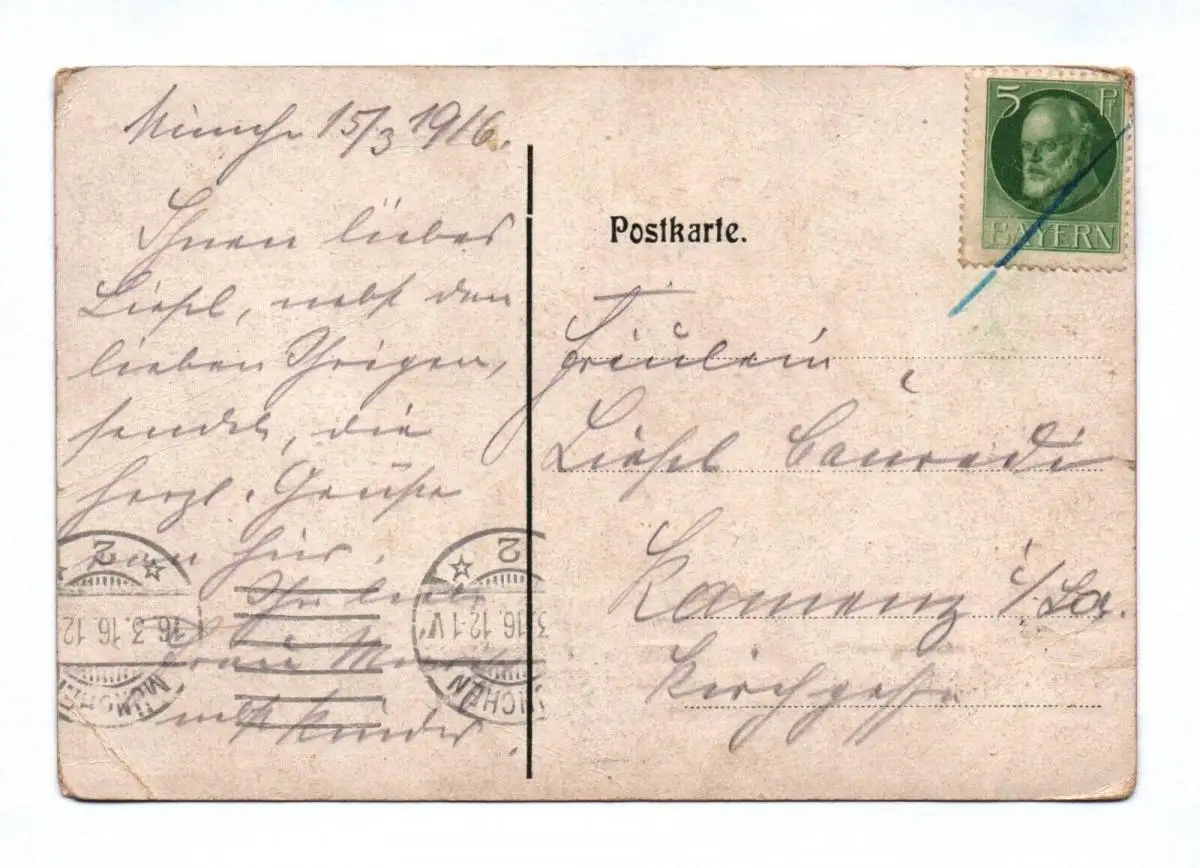 München 15/3 1916.
Ihnen liebes
Liesel, nebst den
lieben Ihrigen,
sendet, die
herzl. Grüße
von hier.
Ihre liebe
mit Kinder.
Postkarte.
5 Pf
BAYERN
Fräulein
Liesel Conradi
Kamenz i/Sa.
Kirchgasse
MÜNCHEN 2
16.3.16.12-
MÜNCHEN 2
3.16.12-1 V